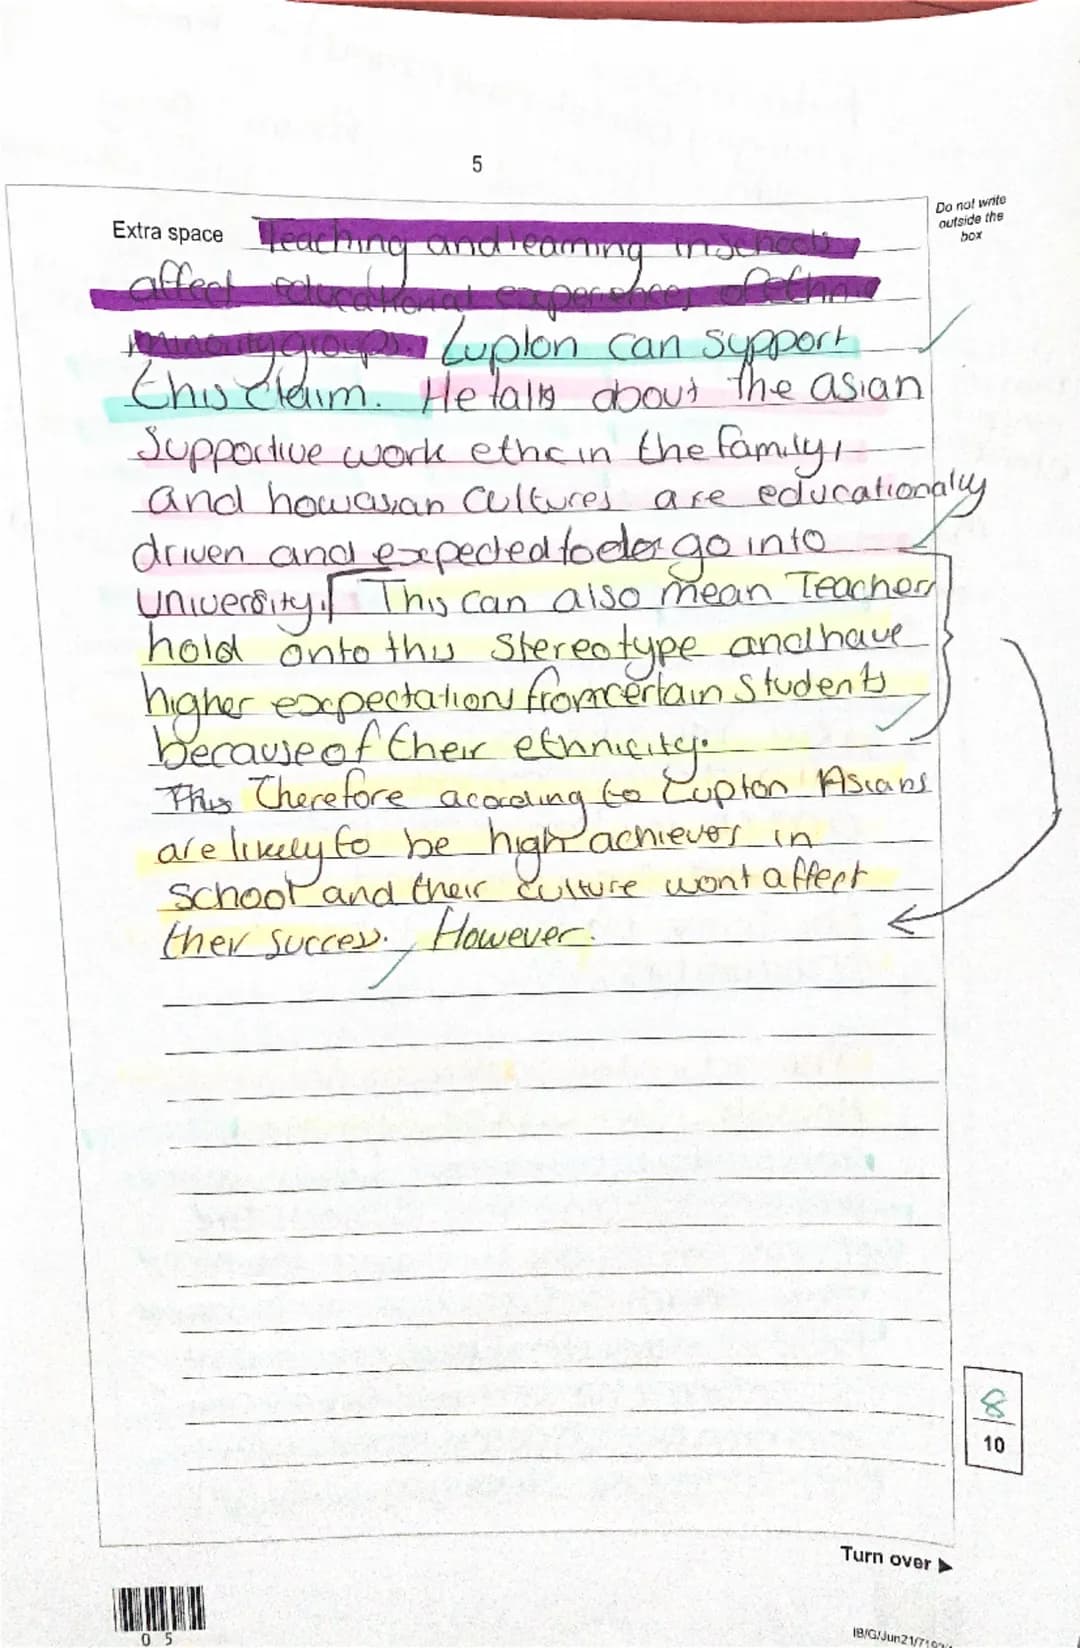 5
Do not write
outside the
box
Extra space Teaching and learning in schools
affect educational experiences of ethnic
minority groups. Lupton can support
this claim. He talks about the asian
Supportive work ethc in the family,
and how asian Cultures are educationaly
driven and expected to go into
University. This can also mean Teachers
hold onto this Stereotype and have
higher expectations from certain Students
because of their ethnicity.
This Therefore acording to Lupton Asians
are likely to be high achievers in
school and their culture wont affect
their success. However.
8
10
Turn over ▶
05
IB/G/Jun21/7192/